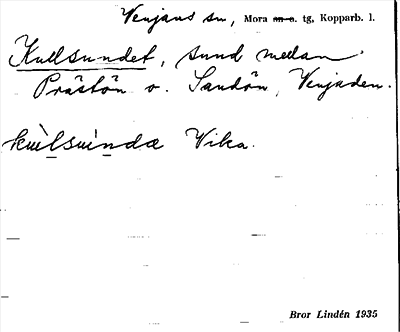 Venjans sn, Mora m. o. tg, Kopparb. l.
Kullsundet, sund mellan
Prästön o. Sandön, Venjaden.
Vika.
Bror Lindén 1935